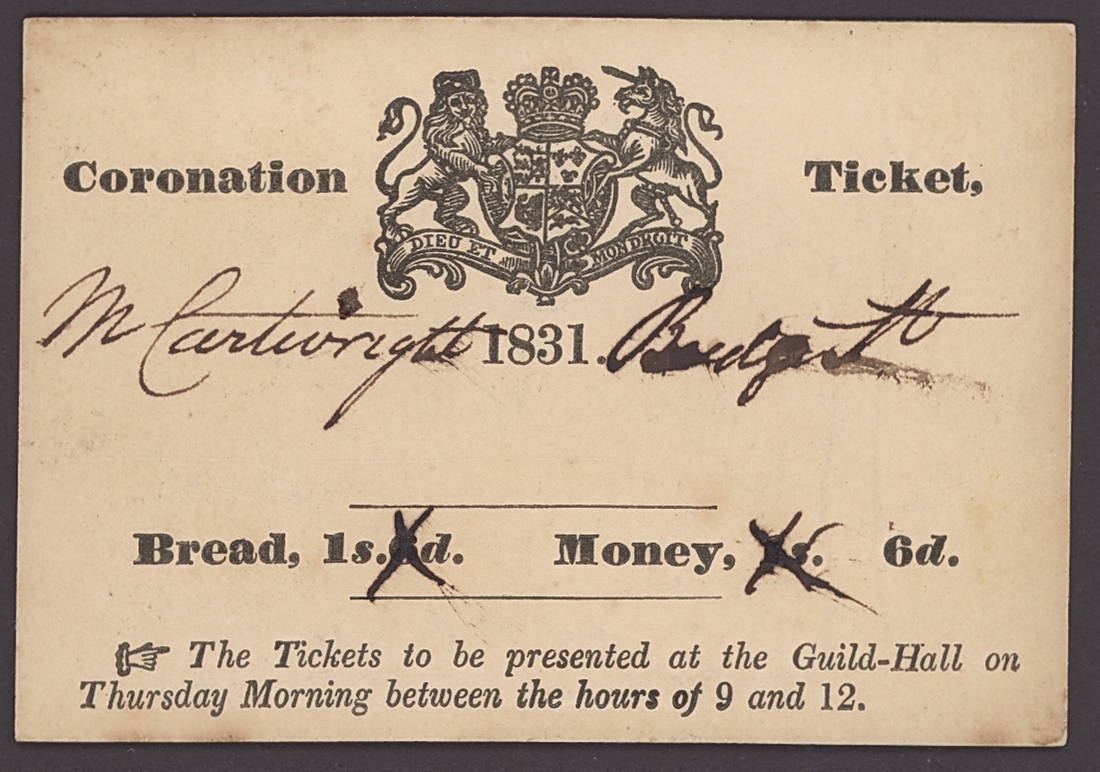 DIEU ET MON DROIT
Coronation Ticket,
M Cartwright 1831.
Bread, 1s. d. Money, s. 6d.
The Tickets to be presented at the Guild-Hall on
Thursday Morning between the hours of 9 and 12.